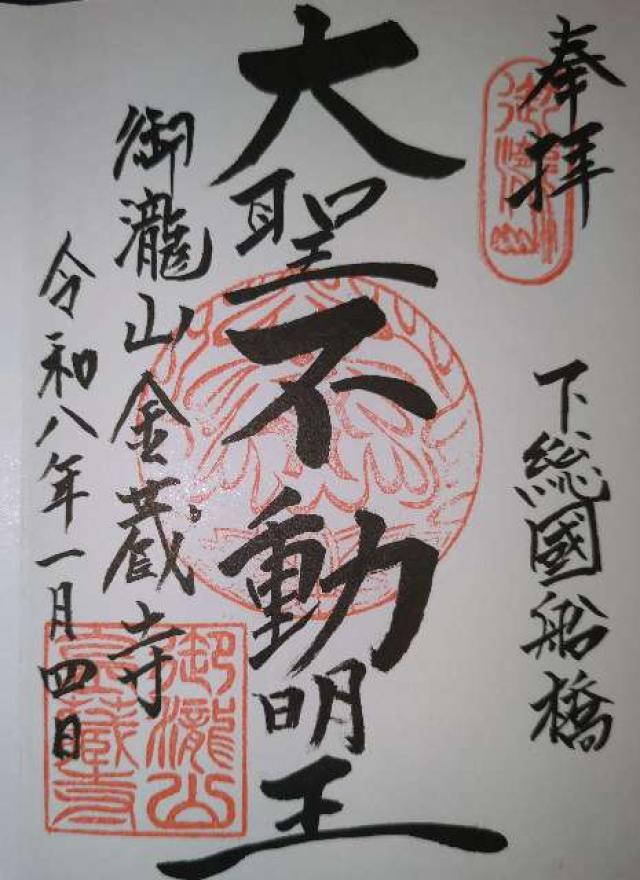 奉拝
下総國船橋
大聖不動明王
御瀧山金蔵寺
令和八年一月四日
御瀧山
金藏寺